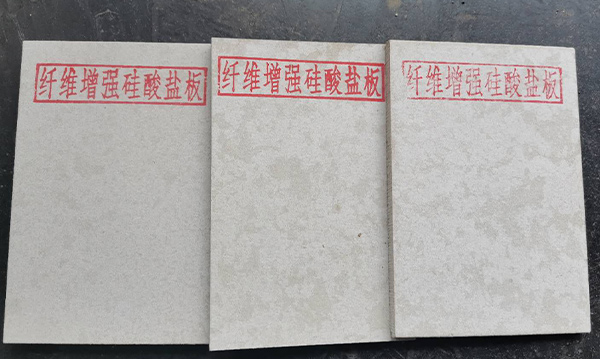 纤维增强硅酸盐板
纤维增强硅酸盐板
纤维增强硅酸盐板